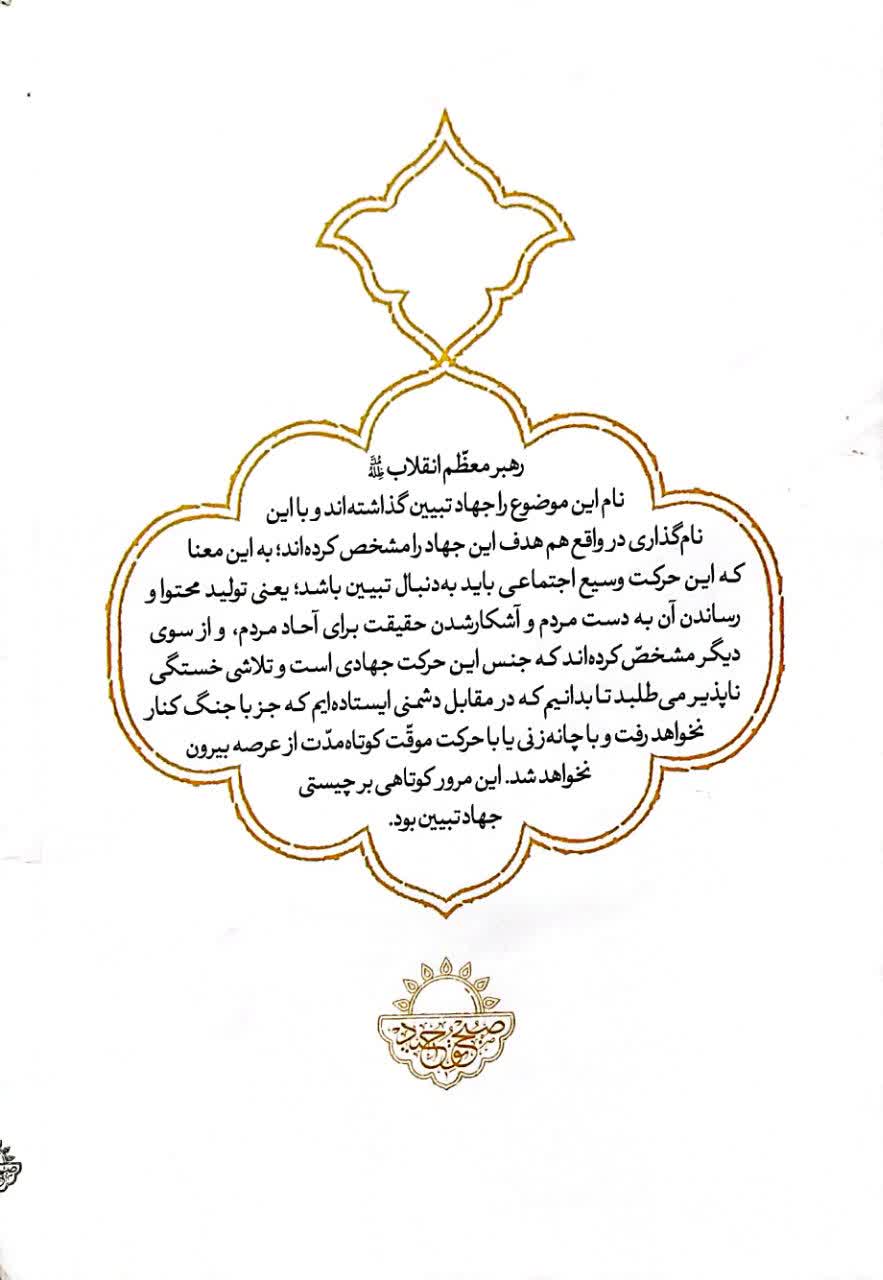 رهبر معظّم انقلاب مُدَّظِلُّهُ
نام این موضوع را جهاد تبیین گذاشته‌اند و با این
نام‌گذاری در واقع هم هدف این جهاد را مشخص کرده‌اند؛ به این معنا
که این حرکت وسیع اجتماعی باید به‌دنبال تبیین باشد؛ یعنی تولید محتوا و
رساندن آن به دست مردم و آشکارشدن حقیقت برای آحاد مردم، و از سوی
دیگر مشخصّ کرده‌اند که جنس این حرکت جهادی است و تلاشی خستگی
ناپذیر می‌طلبد تا بدانیم که در مقابل دشمنی ایستاده‌ایم که جز با جنگ کنار
نخواهد رفت و با چانه‌زنی یا با حرکت موقّت کوتاه‌مدّت از عرصه بیرون
نخواهد شد. این مرور کوتاهی بر چیستی
جهاد تبیین بود.